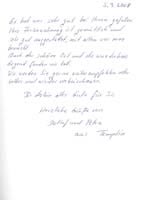 2.9.2008
Es hat uns sehr gut bei Ihnen gefallen
Ihre Ferienwohnung ist gemütlich und
gut ausgestattet, mit allem was man
braucht.
Auch der schöne Ort und die wunderbare
Gegend fanden wir toll.
Wir werden Sie gerne weiterempfehlen oder
selber mal wieder vorbeischauen.
Alles Gute für Sie
Herzliche Grüße von
Detlef und Petra
aus Templin